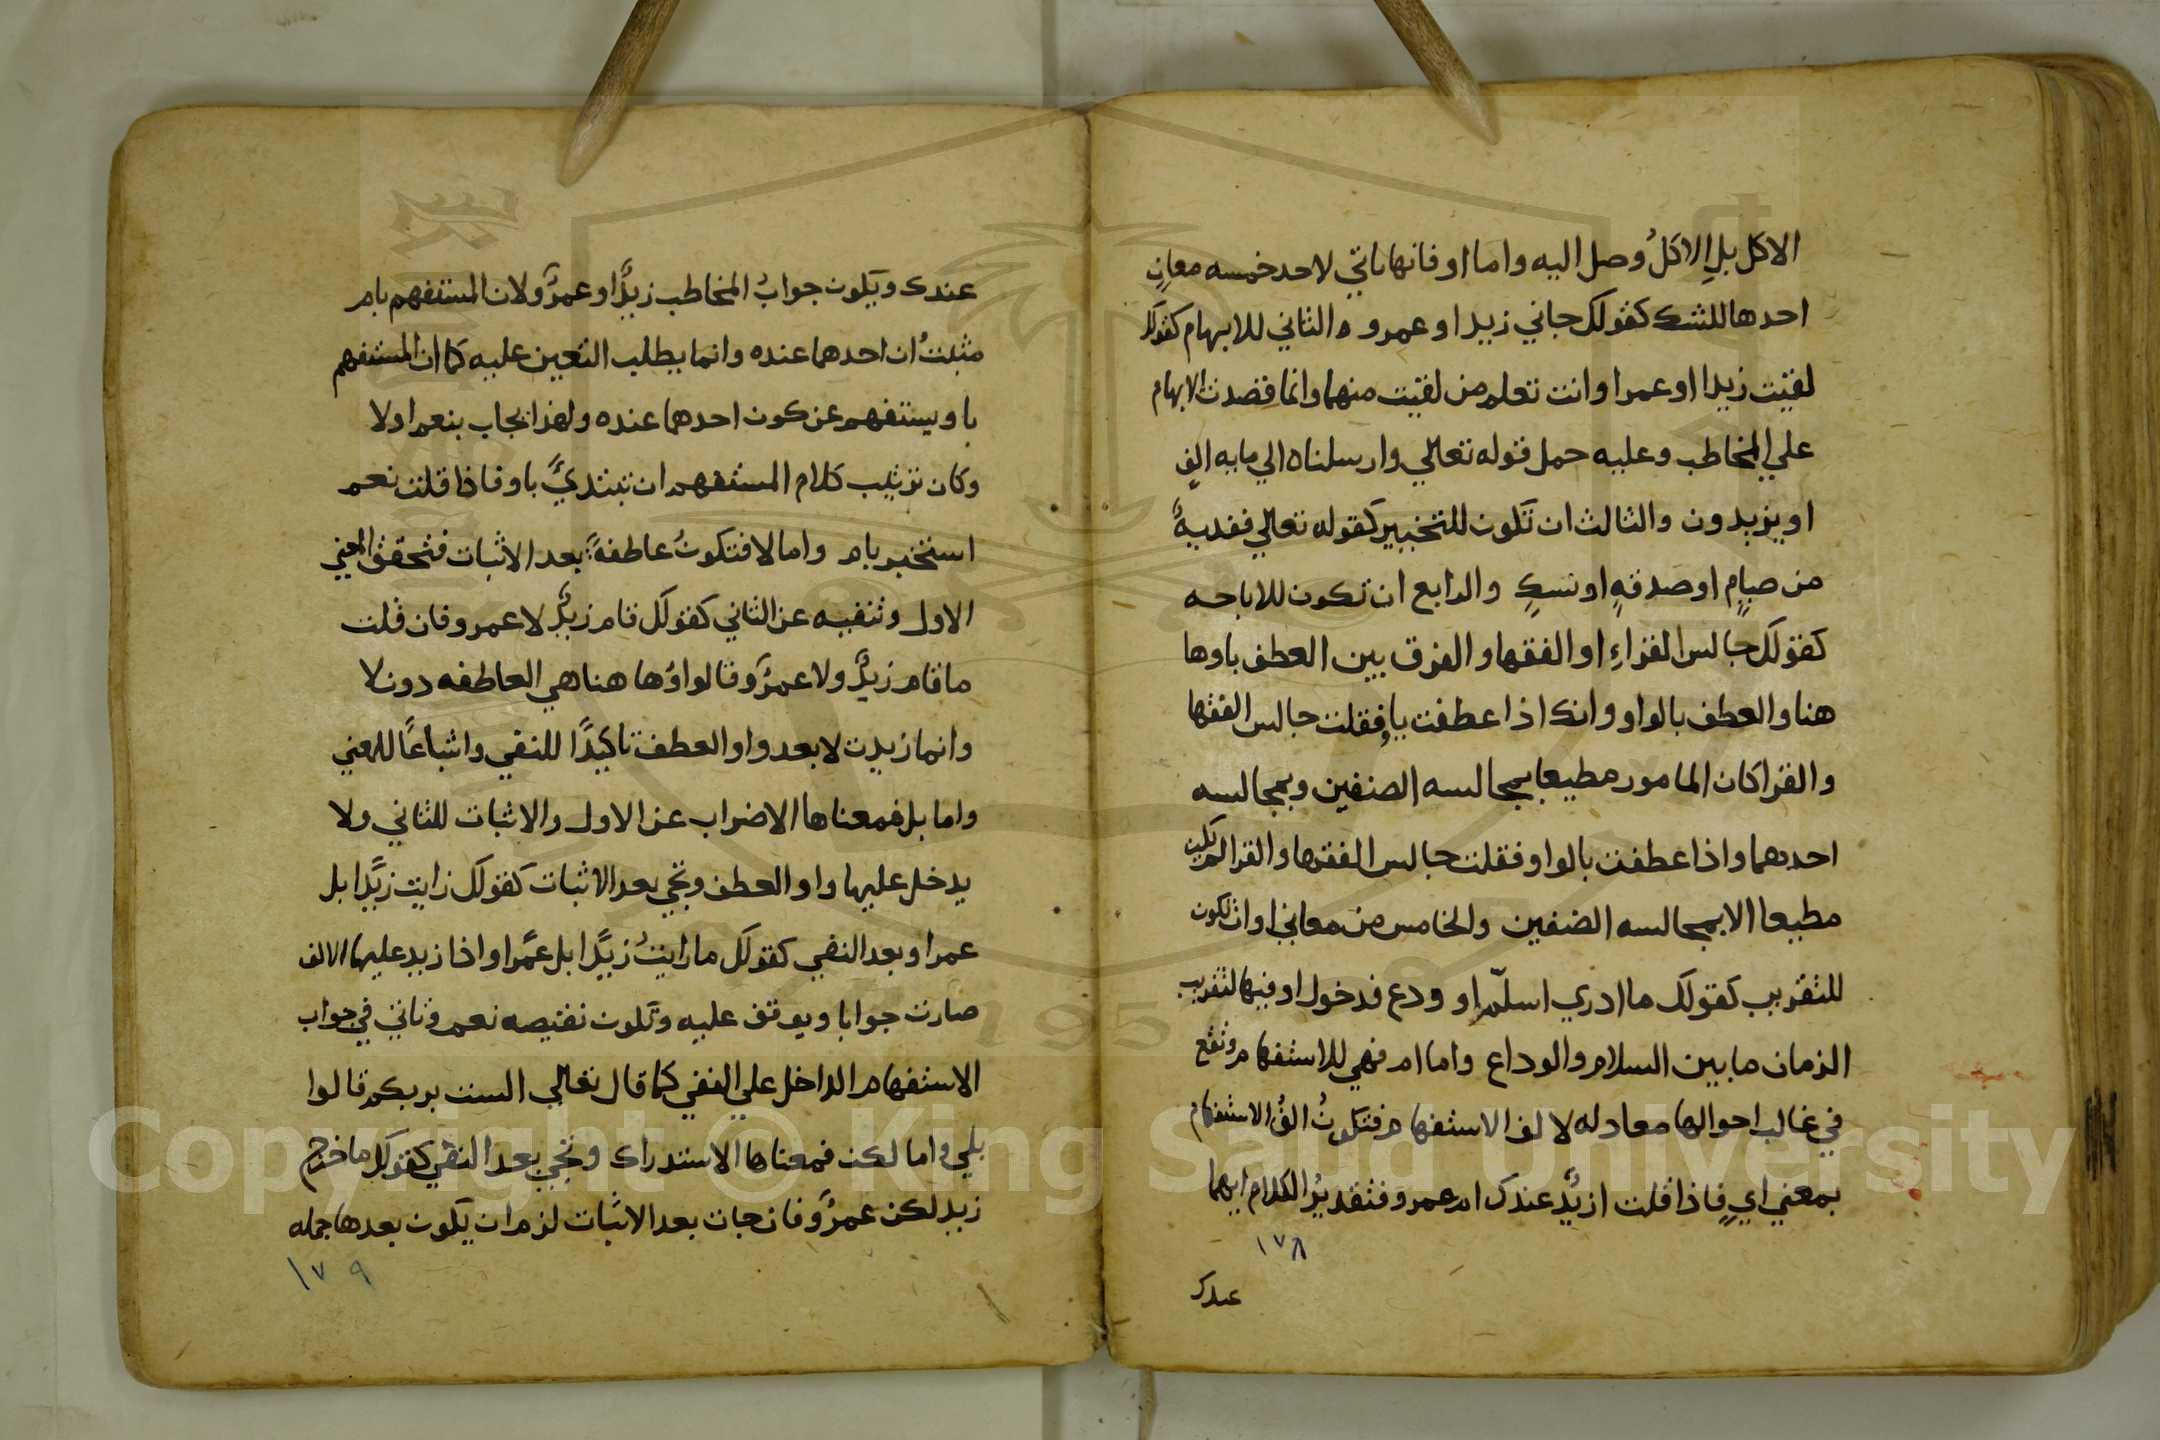 الاكل بلِ الاكلُ وصل اليه واما او فانها تاتي لاحد خمسه معانٍ
احدها للشك كقولك جاني زيد او عمرو ه الثاني للابهام كقولك
لقيت زيدا او عمرا وانت تعلم من لقيت منهما وانما قصدت الابهام
علي المخاطب وعليه حمل قوله تعالي وارسلناه الي مايه الفٍ
او يزيدون والثالث ان تكون للتخيير كقوله تعالي ففديةٌ
من صيامٍ او صدقهٍ او نسكٍ والرابع ان تكون للاباحه
كقولك جالس القراءِ او الفقها والفرق بين العطف باوها
هنا والعطف بالواو وانك اذا عطفت باو فقلت جالس الفقها
والقرا كان المامور مطيعا بمجالسه الصنفين وبمجالسه
احديهما واذا عطفت بالواو فقلت جالس الفقها والقرا لم يكن
مطيعا الا بمجالسه الصنفين والخامس من معاني او ان تكون
للتقريب كقولك ما ادري اسلّم او ودع فدخول او فيها لتقريب
الزمان ما بين السلام والوداع واما ام فهي للاستفهام وتقع
في غالب احوالها معادله لالف الاستفهام فتكونُ الفُ الاستفهام
بمعني ايٍ فاذا قلت ازيدٌ عندك ام عمرو فتقديرُ الكلام ايهما
١٧٨
عندك
عندك ويكون جوابُ المخاطب زيدٌ او عمرٌو لان المستفهم بام
مثبتُ ان احدهما عنده وانما يطلب التعين عليه كما ان المستفهم
باو يستفهم عن كون احدهما عنده ولهذا يجاب بنعم او لا
وكان ترتيب كلام المستفهم ان تبتديَ باو فاذا قلت نعم
استخبر بام واما لا فتكونُ عاطفةً بعد الاثبات فتحقق المعني
الاول وتنفيه عن الثاني كقولك قام زيدٌ لا عمرو فان قلت
ما قام زيدٌ ولا عمرٌو قالوا وُها هنا هي العاطفه دون لا
وانما زيدت لا بعد واو العطف تاكيدًا للنفي واشباعًا للمعني
واما بل فمعناها الاضراب عن الاول والاثبات للثاني ولا
يدخل عليها واو العطف وتجي بعد الاثبات كقولك رايت زيدًا بل
عمرا وبعد النفي كقولك ما رايتُ زيدًا بل عمًرا واذا زيد عليها الالف
صارت جوابا ويوقف عليه وتكون نقيصه نعم وتاتي في جواب
الاستفهام الداخل علي النفي كما قال تعالي الست بربكم قالوا
بلي واما لكن فمعناها الاستدراك وتجي بعد النفي كقولك ما خرج
زيد لكن عمرٌو فان جات بعد الاثبات لزم ان يكون بعدها جمله
١٧٩
Copyright © King Saud University
1957